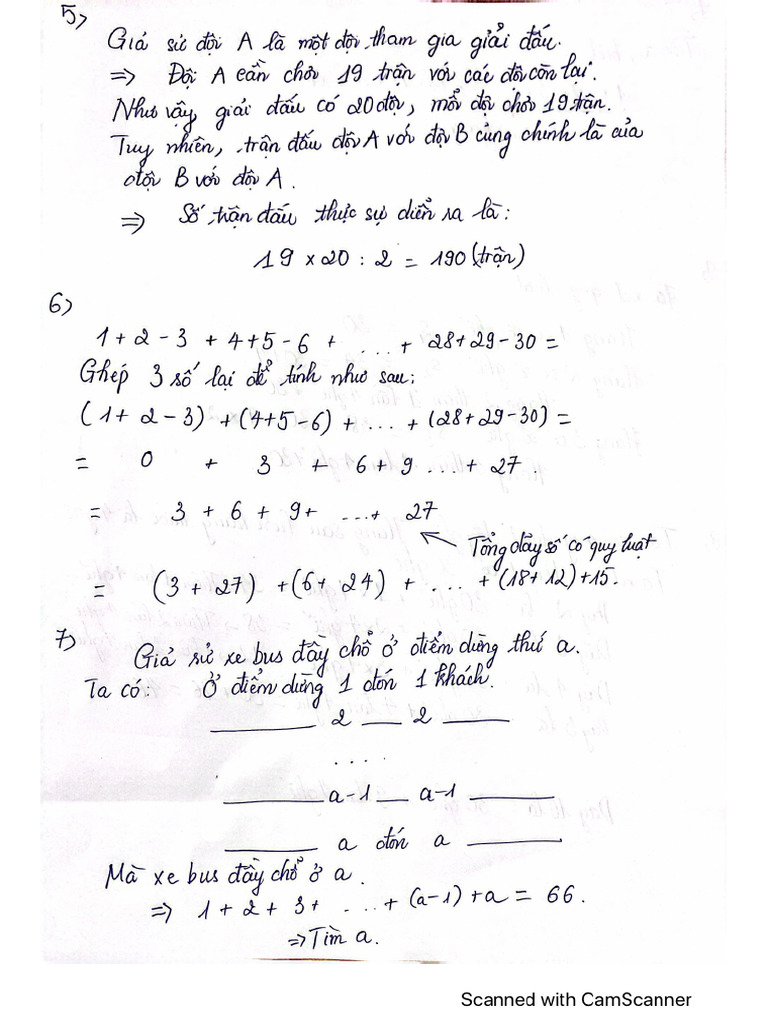 5>
Giả sử đội A là một đội tham gia giải đấu.
=> Đội A cần chơi 19 trận với các đội còn lại.
Như vậy giải đấu có 20 đội, mỗi đội chơi 19 trận.
Tuy nhiên, trận đấu đội A với đội B cũng chính là của
đội B với đội A.
=> Số trận đấu thực sự diễn ra là:
19 x 20 : 2 = 190 (trận)
6>
1 + 2 - 3 + 4 + 5 - 6 + ... + 28 + 29 - 30 =
Ghép 3 số lại để tính như sau:
(1 + 2 - 3) + (4 + 5 - 6) + ... + (28 + 29 - 30) =
= 0 + 3 + 6 + 9 ... + 27.
= 3 + 6 + 9 + ... + 27
Tổng dãy số có quy luật
= (3 + 27) + (6 + 24) + ... + (18 + 12) + 15.
7>
Giả sử xe bus đầy chỗ ở điểm dừng thứ a.
Ta có: Ở điểm dừng 1 đón 1 khách.
____ 2 ____ 2 ____
....
____ a-1 ____ a-1 ____
____ a đón a ____
Mà xe bus đầy chỗ ở a.
=> 1 + 2 + 3 + ... + (a-1) + a = 66.
=> Tìm a.
Scanned with CamScanner